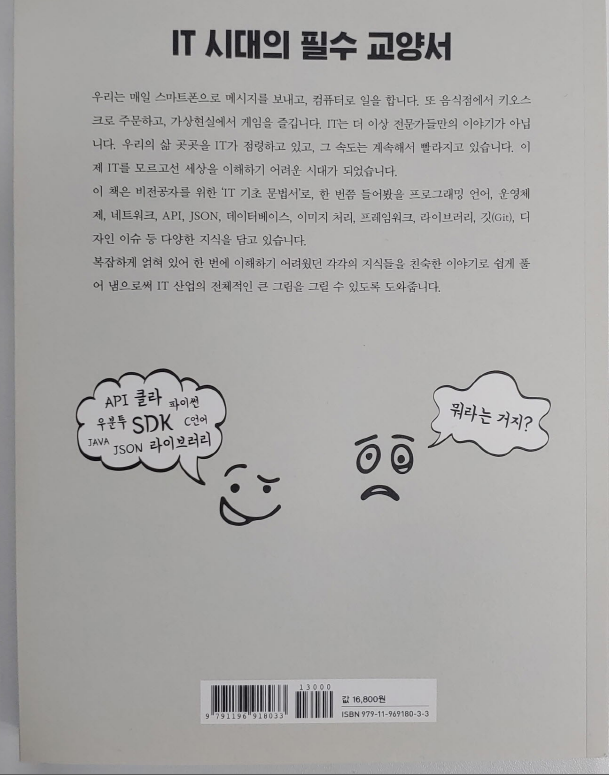 IT 시대의 필수 교양서
우리는 매일 스마트폰으로 메시지를 보내고, 컴퓨터로 일을 합니다. 또 음식점에서 키오스
크로 주문하고, 가상현실에서 게임을 즐깁니다. IT는 더 이상 전문가들만의 이야기가 아닙
니다. 우리의 삶 곳곳을 IT가 점령하고 있고, 그 속도는 계속해서 빨라지고 있습니다. 이
제 IT를 모르고선 세상을 이해하기 어려운 시대가 되었습니다.
이 책은 비전공자를 위한 'IT 기초 문법서'로, 한 번쯤 들어봤을 프로그래밍 언어, 운영체
제, 네트워크, API, JSON, 데이터베이스, 이미지 처리, 프레임워크, 라이브러리, 깃(Git), 디
자인 이슈 등 다양한 지식을 담고 있습니다.
복잡하게 얽혀 있어 한 번에 이해하기 어려웠던 각각의 지식들을 친숙한 이야기로 쉽게 풀
어 냄으로써 IT 산업의 전체적인 큰 그림을 그릴 수 있도록 도와줍니다.
API 클라 파이썬
우분투 SDK C언어
JAVA JSON 라이브러리
뭐라는 거지?
13000
값 16,800원
9 791196 918033
ISBN 979-11-969180-3-3